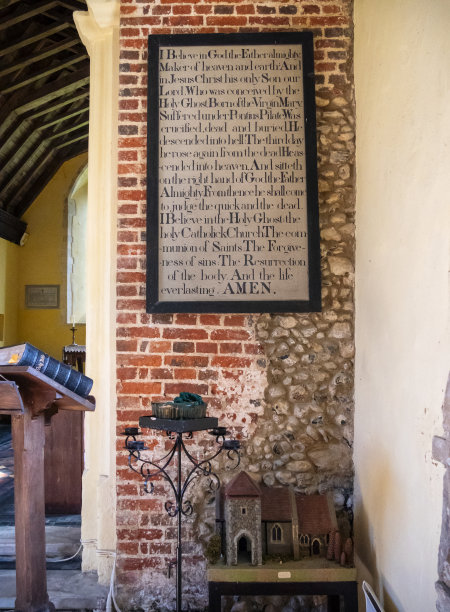 I Believe in God the Father almighty,
Maker of heaven and earth: And
in Jesus Christ his only Son our
Lord Who was conceived by the
Holy Ghost Born of the Virgin Mary
Suffered under Pontius Pilate Was
crucified, dead, and buried He
descended into hell The third day
he rose again from the dead He as-
cended into heaven, And sitteth
on the right hand of God the Father
Almighty From thence he shall come
to judge the quick and the dead.
I Believe in the Holy Ghost: the
holy Catholick Church The com-
munion of Saints The Forgive-
ness of sins The Resurrection
of the body, And the life
everlasting. AMEN.